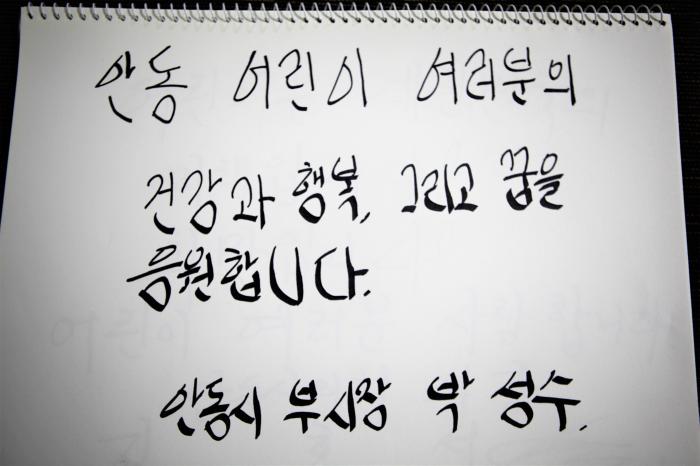 안동 어린이 여러분의
건강과 행복, 그리고 꿉을
응원합니다.
안동시 부시장 박 성수.